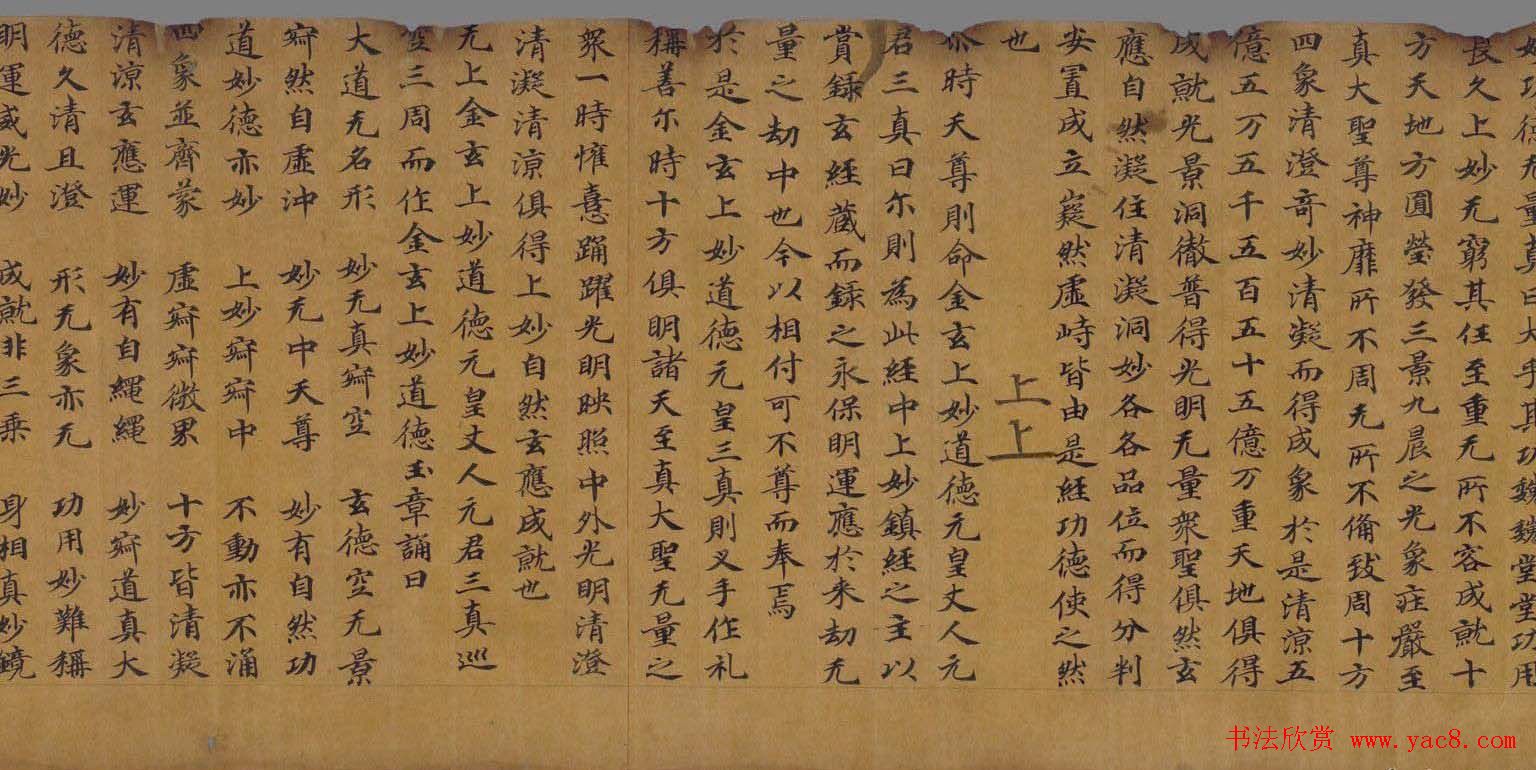 妙功德无量真曰大乎其功巍巍堂堂功用
長久上妙无窮其任至重无所不容成就十
方天地方圓瑩發三景九晨之光象疰嚴至
真大聖尊神靡所不周无所不備致周十方
四象清澄奇妙清凝而得成象於是清涼五
億五万五千五百五十五億万重天地俱得
成就光景洞徹普得光明无量衆聖俱然玄
應自然凝住清凝洞妙各各品位而得分判
安置成立嶷然虛峙皆由是經功德使之然
也
上上
尒時天尊則命金玄上妙道德元皇丈人元
君三真曰尒則為此經中上妙鎮經之主以
賞錄玄經蔵而錄之永保明運應於来劫无
量之劫中也今以相付可不尊而奉焉
於是金玄上妙道德元皇三真則叉手作礼
稱善尒時十方俱明諸天至真大聖无量之
衆一時懽憙踊躍光明映照中外光明清澄
清凝清涼俱得上妙自然玄應成就也
无上金玄上妙道德元皇丈人元君三真巡
空三周而作金玄上妙道德玉章誦曰
大道无名形 妙无真寂空 玄德空无景
寂然自虛沖 妙无中天尊 妙有自然功
道妙德亦妙 上妙寂寂中 不動亦不涌
四象並齊蒙 虛寂寂微果 十方皆清凝
清涼玄應運 妙有自繩繩 妙寂道真大
德久清且澄 形无象亦无 功用妙難稱
明運威光妙 成就非三乗 身相真妙鏡
书法欣赏 www.yac8.com